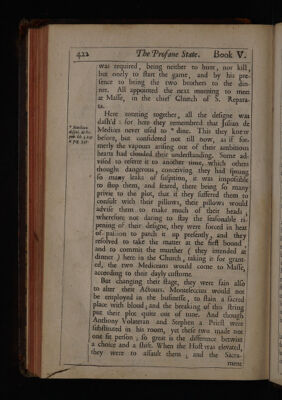 422 The Profane State. Book V.
was required, being neither to hunt, nor kill,
but onely to start the game, and by his pre-
sence to bring the two brothers to the din-
ner. All appointed the next morning to meet
at Masse, in the chief Church of S. Repara-
ta.
Here meeting together, all the designe was
dash'd : for here they remembred that Julian de
Medices never used to * dine. This they knew
before, but considered not till now, as if for-
merly the vapours arising out of their ambitious
hearts had clouded their understanding. Some ad-
vised to referre it to another time, which others
thought dangerous, conceiving they had sprung
so many leaks of suspition, it was impossible
to stop them, and feared, there being so many
privie to the plot, that if they suffered them to
consult with their pillows, their pillows would
advise them to make much of their heads ;
wherefore not daring to stay the seasonable ri-
pening of their designe, they were forced in heat
of passion to parch it up presently, and they
resolved to take the matter at the first bound,
and to commit the murther ( they intended at
dinner ) here in the Church, taking it for grant-
ed, the two Mediceans would come to Masse,
according to their dayly custome.
But changing their stage, they were fain also
to alter their Actours. Monteseccius would not
be employed in the businesse, to stain a sacred
place with bloud ; and the breaking of this string
put their plot quite out of tune. And though
Anthony Volateran and Stephen a Priest were
substituted in his room, yet these two made not
one fit person ; so great is the difference betwixt
a choice and a shift. When the Host was elevated,
they were to assault them ; and the Sacra-
ment
* Machiav.